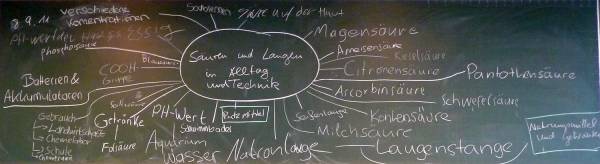 verschiedene
Konzentrationen
Säure auf der Haut
PH-wert der Haut
Essig
phosphorsäure
Blausäure
Magensäure
Ameisensäure
Kieselsäure
Citronensäure
Pantothensäure
Säuren und Laugen
in Alltag
und Technik
COOH-
Gruppe
Batterien &
Akkumulatoren
Arcorbinsäure
Schwefelsäure
Salzsäure
Getränke
PH-Wert
Schwimmbadel
Putzmittel
Seifenlauge
Kohlensäure
Milchsäure
Gebrauch
Landwirtschaft
Chemielabor
Schule
Folsäure
Aquarium
Wasser
Natronlauge
Laugenstange
Nahrungsmittel
und Getränke